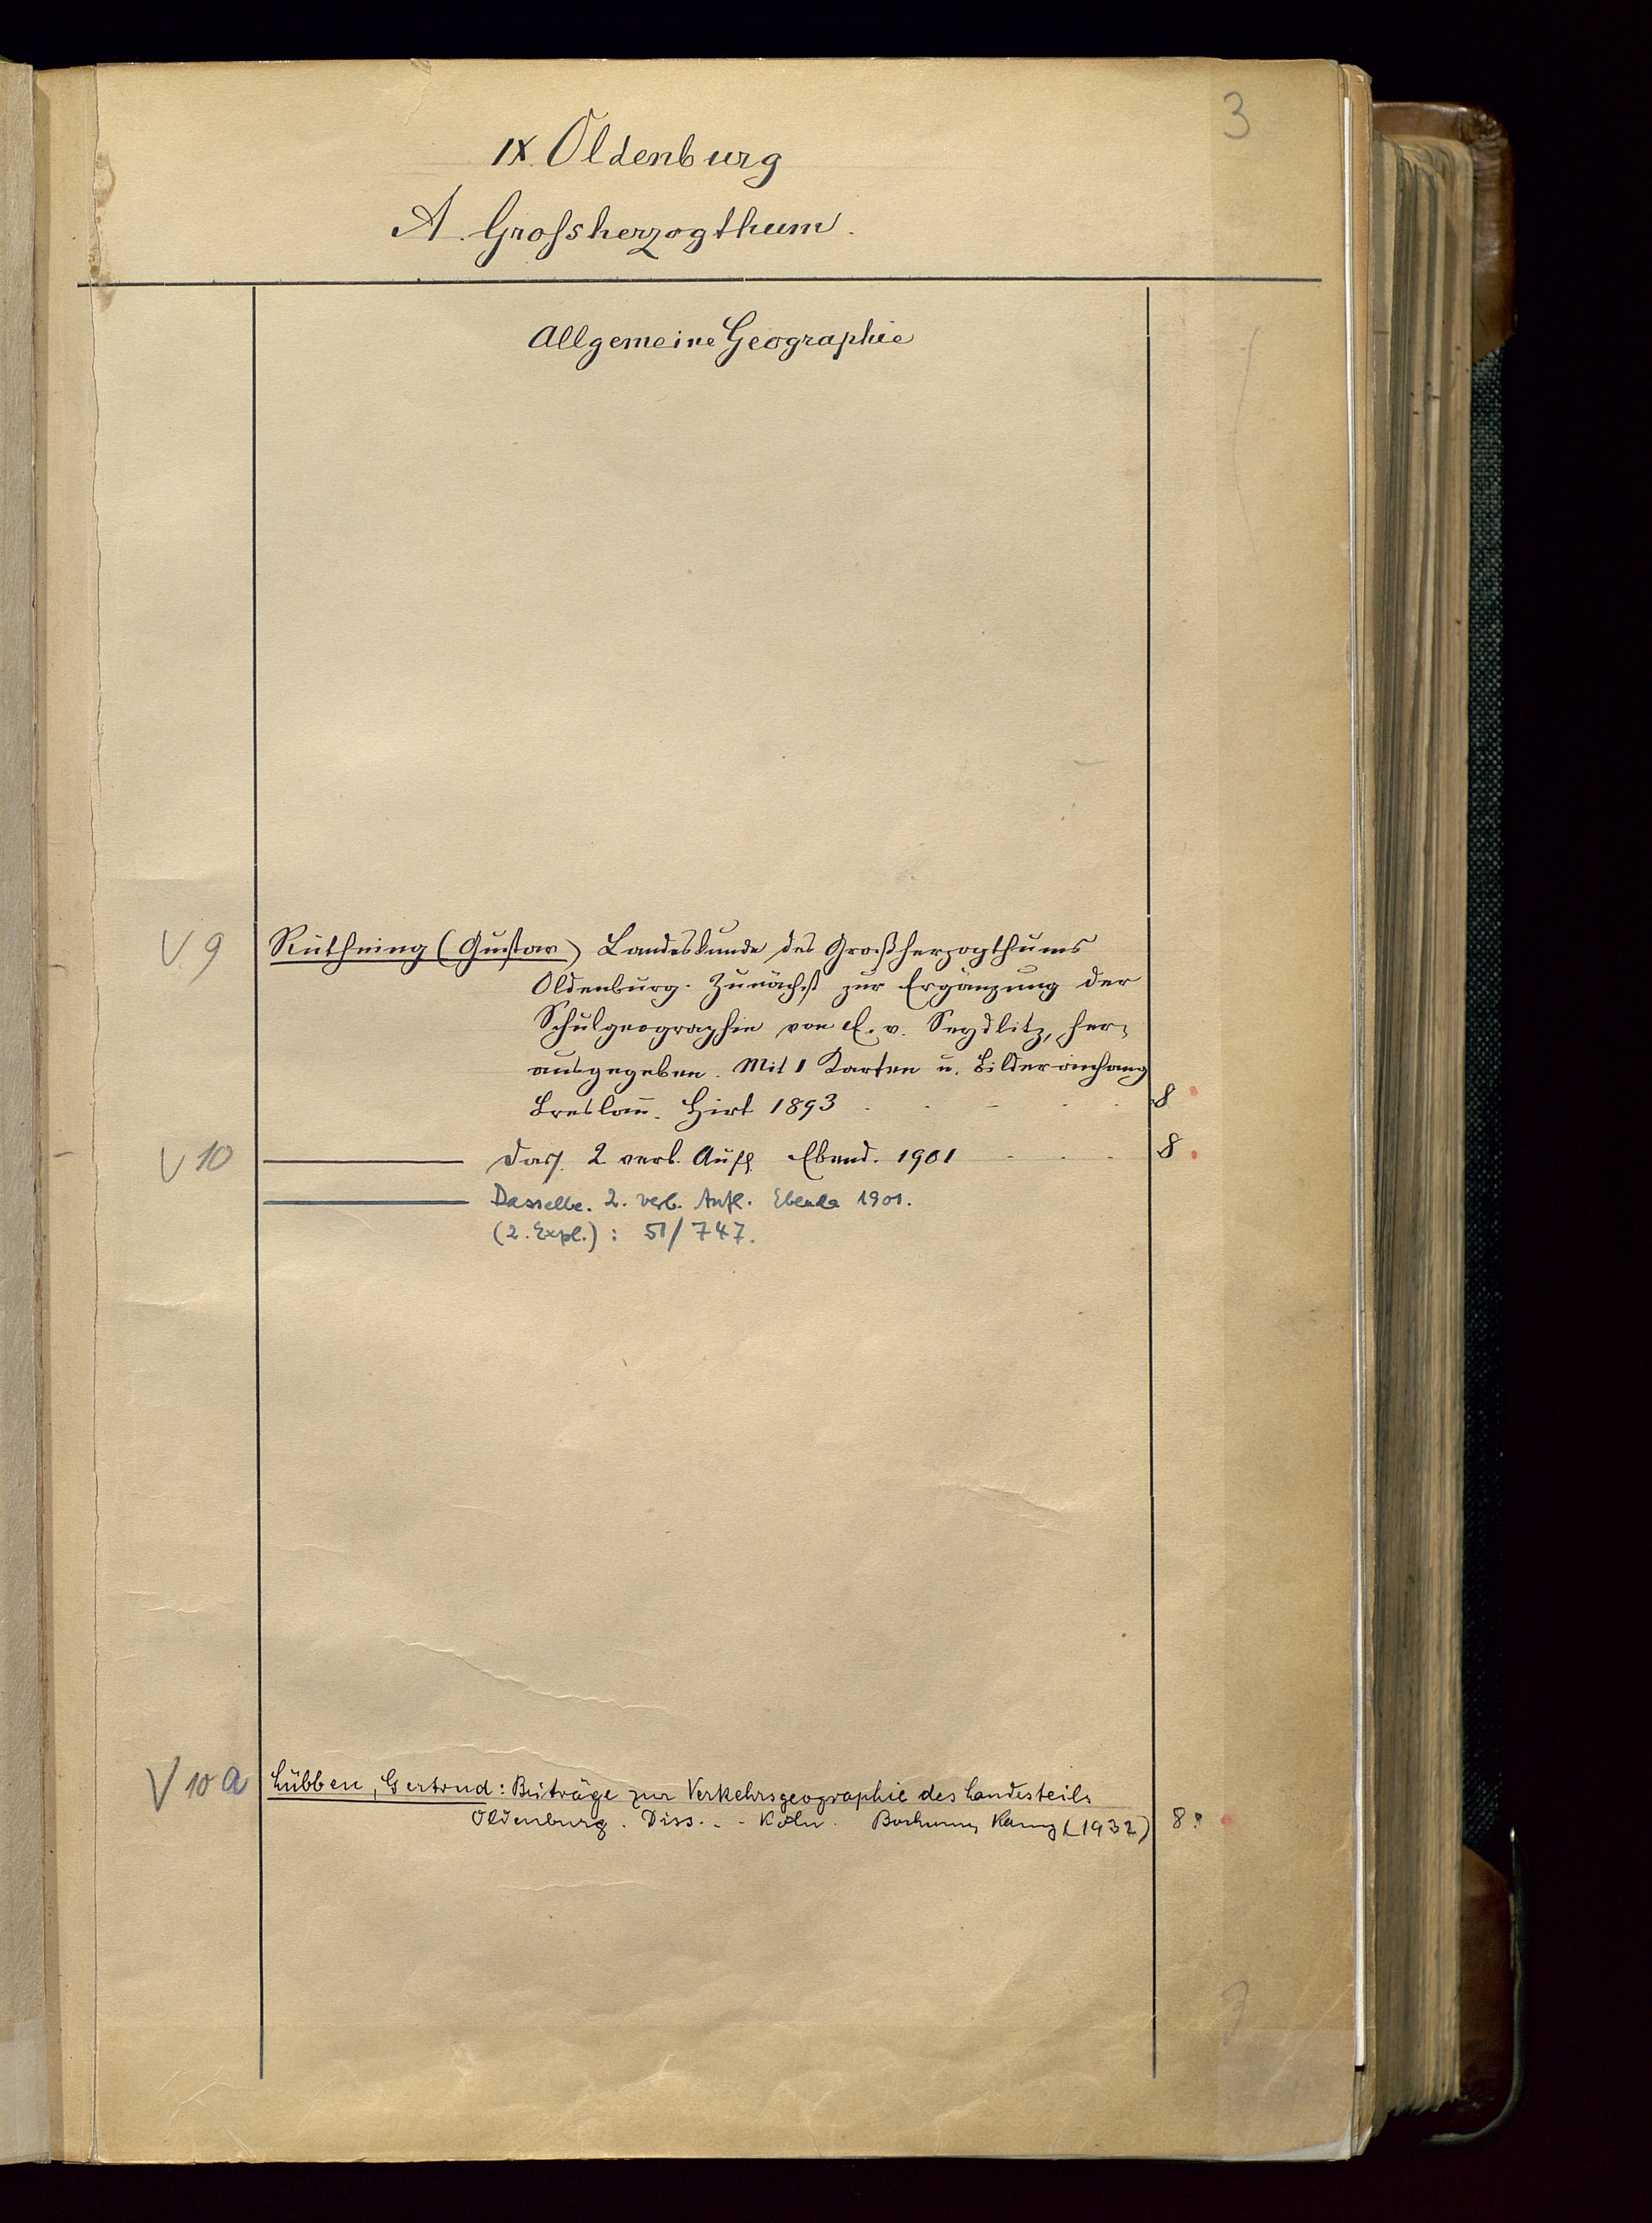 3
IX. Oldenburg
A. Grofsherzogthum.
Allgemeine Geographie
V 9 Rüthning (Gustav) Landeskunde des Großherzogthums
Oldenburg. Zunächst zur Ergänzung der
Schulgeographie von E. v. Seydlitz, her-
ausgegeben. Mit 1 Karten u. Bilderanhang
Breslau. Hirt 1893 . . - . . 8
V 10 ——— Dass. 2 verb. Aufl Ebend. 1901 - . . . 8.
——— Dasselbe. 2. verb. Aufl. Ebenda 1901.
(2. Expl.): 51/747.
V 10 a Lübben, Gertrud: Beiträge zur Verkehrsgeographie des Landesteils
Oldenburg. Diss. . - Köln. Bochum, (1932) 8: